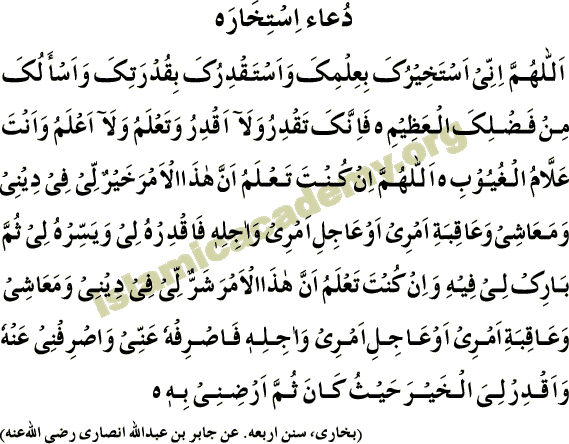 دُعاء اِسْتِخَارَه ه
اَللّٰهُمَّ اِنِّیْ اَسْتَخِیْرُکَ بِعِلْمِکَ وَاسْتَقْدِرُکَ بِقُدْرَتِکَ وَاَسْأَلُکَ
مِنْ فَضْلِکَ الْعَظِیْمِ ه فَاِنَّکَ تَقْدِرُ وَلَآ اَقْدِرُ وَتَعْلَمُ وَلَآ اَعْلَمُ وَاَنْتَ
عَلَّامُ الْغُیُوْبِ ه اَللّٰهُمَّ اِنْ کُنْتَ تَعْلَمُ اَنَّ هٰذَا الْاَمْرَ خَیْرٌ لِّیْ فِیْ دِیْنِیْ
وَمَعَاشِیْ وَعَاقِبَةِ اَمْرِیْ اَوْعَاجِلِ اَمْرِیْ وَاٰجِلِهٖ فَاقْدِرْهُ لِیْ وَیَسِّرْهُ لِیْ ثُمَّ
بَارِکْ لِیْ فِیْهِ وَاِنْ کُنْتَ تَعْلَمُ اَنَّ هٰذَا الْاَمْرَ شَرٌّ لِّیْ فِیْ دِیْنِیْ وَمَعَاشِیْ
وَعَاقِبَةِ اَمْرِیْ اَوْعَاجِلِ اَمْرِیْ وَاٰجِلِهٖ فَاصْرِفْهُ عَنِّیْ وَاصْرِفْنِیْ عَنْهُ
وَاَقْدِرْ لِیَ الْخَیْرَ حَیْثُ کَانَ ثُمَّ اَرْضِنِیْ بِهٖ ه
(بخاری، سنن اربعه. عن جابر بن عبدالله انصاری رضی اللہ عنه)
islamicacademy.org